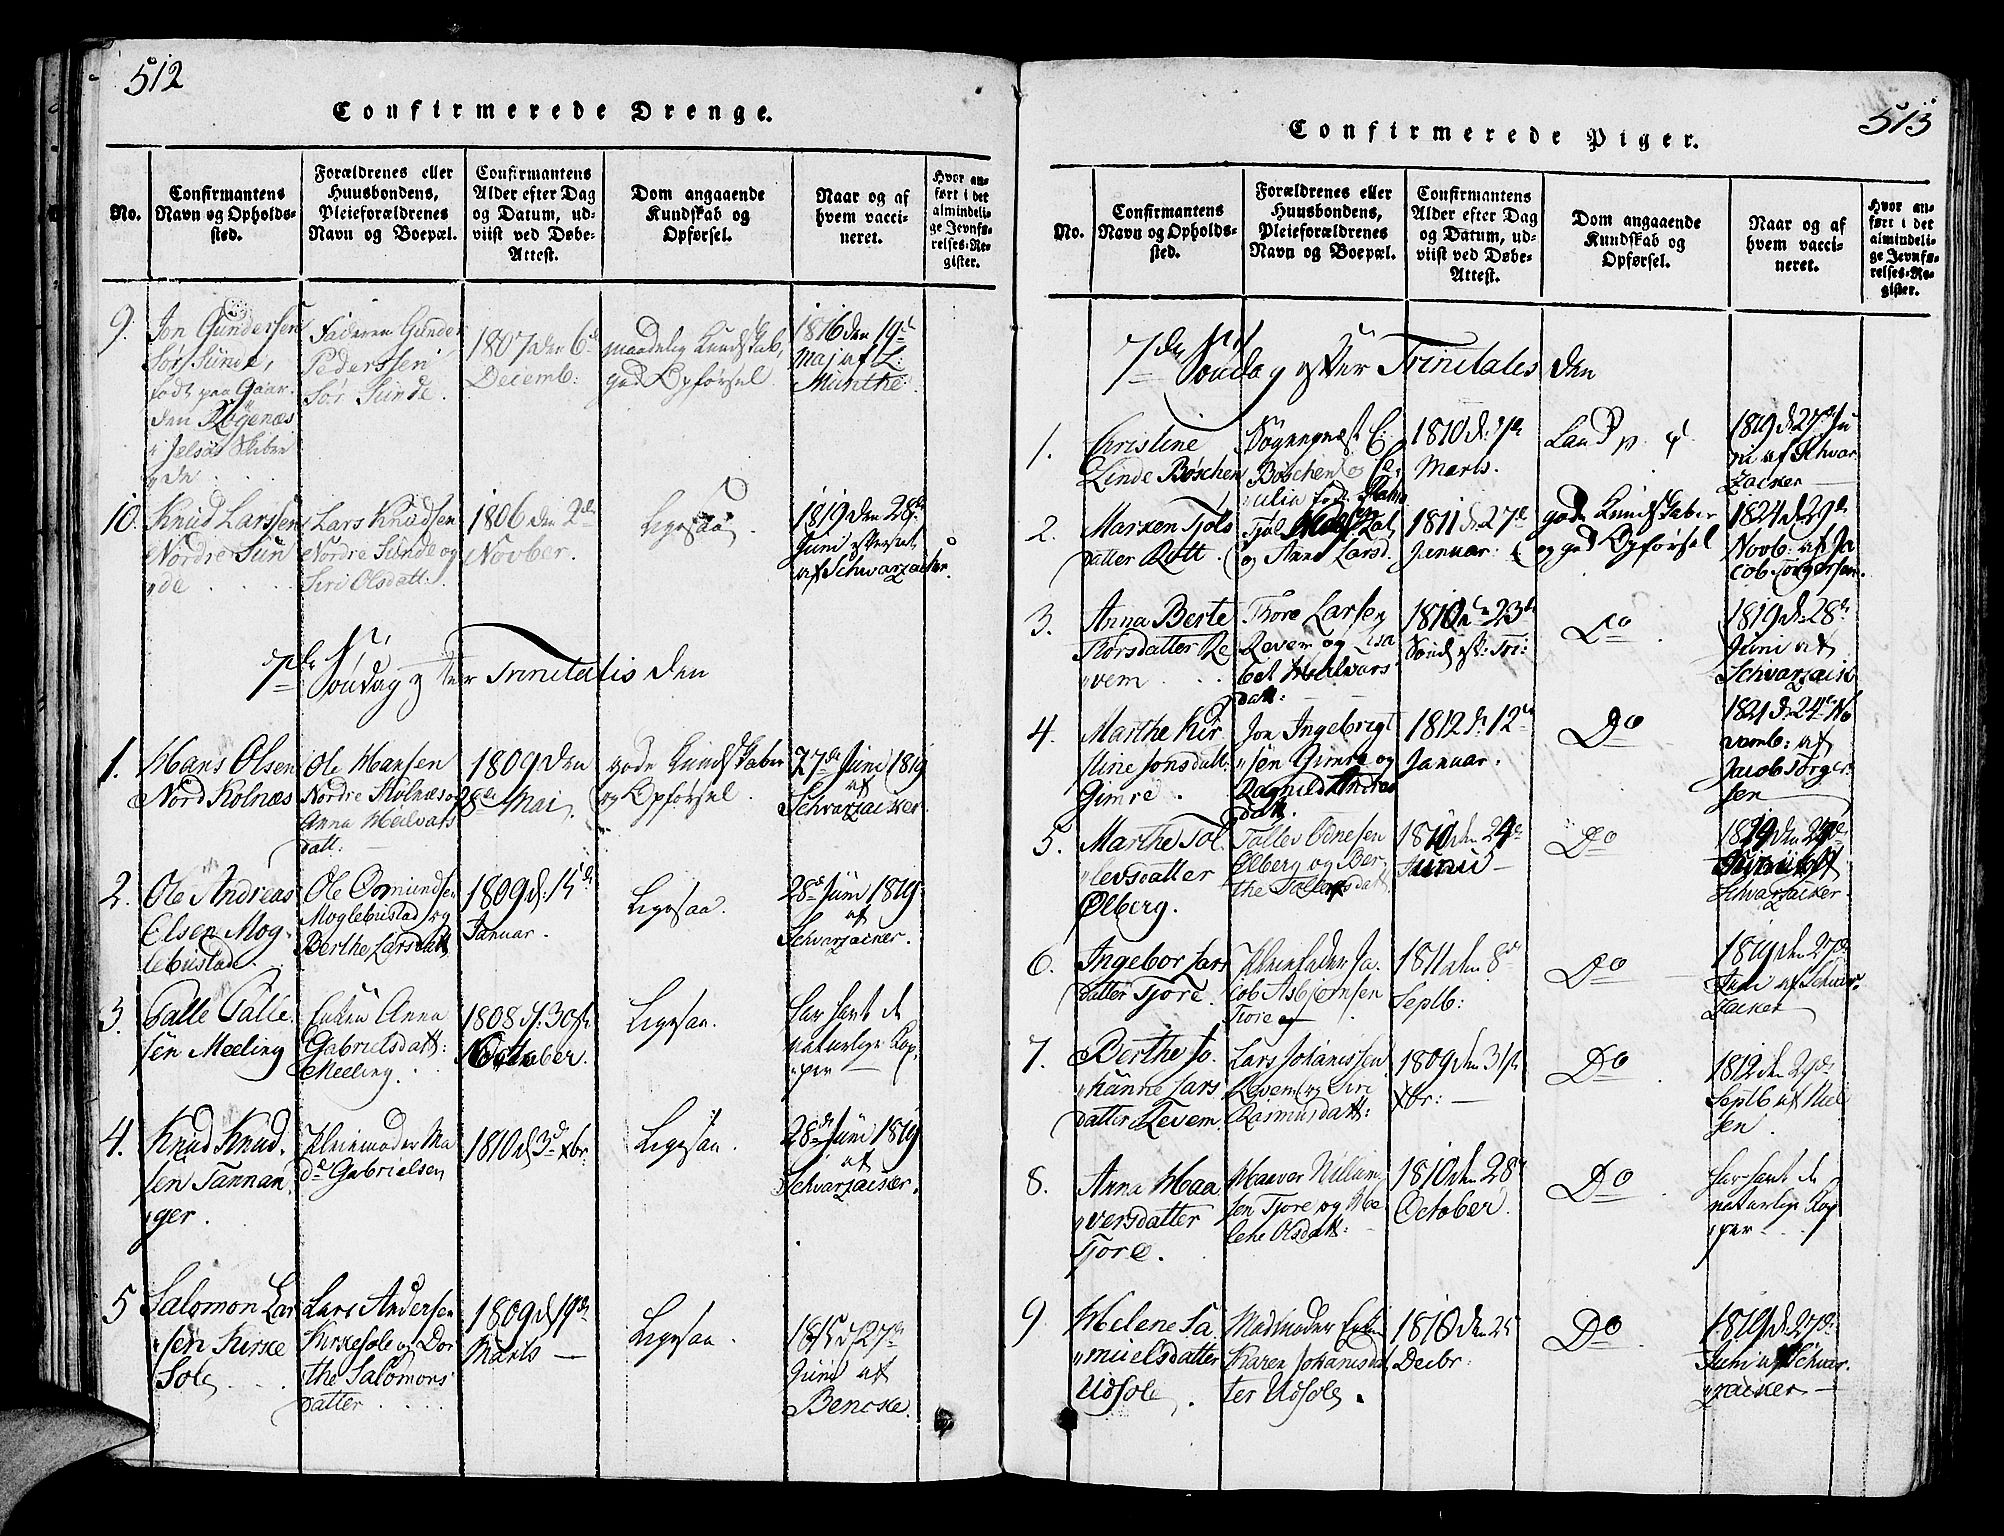 512
Confirmerede Drenge.
No.
Confirmantens
Navn og Opholds-
sted.
Forældrenes eller
Huusbondens,
Pleieforældrenes
Navn og Boepæl.
Confirmantens
Alder efter Dag
og Datum, ud-
viist ved Døbe-
Attest.
Dom angaaende
Kundskab og
Opførsel.
Naar og af
hvem vacci-
neret.
Hvor an-
ført i det
almindeli-
ge Jevnfø-
relses-Re-
gister.
9.
Jon Gundersen
Sør Sunde,
født paa Gaar-
den Røgenæs
i Jelsøe
Faderen Gunder
Pederssen
Sør Sunde.
1807 den 6d
Decemb:
maadelig Kundskab,
god Opførsel.
1816 den 19d
Maj af L:
Munthe.
10.
Knud Larssen
Nordre Sun
de
Lars Knudsen
Nordre Sunde og
Siri Olsdatt:
1806 den 2d
Novber.
Ligesaa.
1819 den 28d
Juni
af Schwarzacker.
7de Søndag efter Trinitatis den
1.
Hans Olsen
Nord Kolnæs
Ole Hansen
Nordre Kolnæs og
Anna Halvars
datt:
1809 den
28de Mai.
gode Kundskaber
og Opførsel.
27de Juni 1819
af
Schvarzacker.
2.
Ole Andreas
Elsen Mog-
lebustad.
Ole Osmundsen
Moglebustad og
Berthe Larsdatt
1809 d: 15de
Januar.
Ligesaa.
28de Juni 1819
af
Schvarzacker.
3.
Talle Talle-
sen Meeling
Enken Anna
Gabrielsdatt:
Meeling.
1808 d: 30te
Ligesaa.
har havt de
naturlige Kop-
per
4.
Knud Knud-
sen Tannan-
ger.
Pleiemoder Ma
Gabrielsen
1810 d 3d xbr.
Ligesaa.
28de Juni 1819
af
Schvarzacker.
5
Salomon Lar
sen Kirke
Sole
Lars Andersen
Kirkesole og Dor
the Salomons
datter
1809 d 19de
Marts
Ligesaa.
1815 d 27de
Juni af
Bencke.
513
Confirmerede Piger.
No.
Confirmantens
Navn og Opholds-
sted.
Forældrenes eller
Huusbondens,
Pleieforældrenes
Navn og Boepæl.
Confirmantens
Alder efter Dag
og Datum, ud-
viist ved Døbe-
Attest.
Dom angaaende
Kundskab og
Opførsel.
Naar og af
hvem vacci-
neret.
Hvor an-
ført i det
almindeli-
ge Jevnfø-
relses-Re-
gister.
7de Søndag efter Trinitatis den
1.
Christine
Linde Bøschen
Sognepræst C.
Bøschen og
1810 d: 7de
Marts.
1819 d 27de Ju
ni af Schvar
zacker
2.
Marxen Tjøls
datter Rott
og Anna Larsd.
1811 d 27de
Januar:
gode Kundskaber
og god Opførsel
1824 d 29de
Novb: af Ja
cob Torgersen.
3.
Anna Berte
Thorsdatter Re
vem
Thore Larsen
Revem og Lisa
bet Halvars
datt:
1810 den 23de
Sønd eft: Tri:
Do
1819 d 28de
Juni af
Schvarzack
4.
Marthe Kir
stine Jonsdatt
Gimre.
Jon Ingebrigt
sen Gimre og
Ragnild Andrea
datt.
1812 d: 12te
Januar.
Do
1821 d 24de No
vemb: af
Jacob Torger-
sen
5.
Marthe Tol
levsdatter
Ølberg.
Tallev Odnesen
Ølberg og Ber-
the
1810 den 24de
Junii
Do
Schvarzacker.
6.
Ingebor Lars
datter Tjore.
Pleiefader Ja-
cob Asbjørnsen
Tjore
1811 den 8de
Septb:
Do
1819 den 27de
Juni af Schvar-
zacker
7.
Berthe Jo-
hanne Lars
datter Revem.
Lars Johanessen
Revem og Siri
Rasmusdatt:
1809 den 31te
xbr:
Do
1812 den 29de
Septb af Niel
sen.
8.
Anna Haa
versdatter
Tjore.
Haaver Villum
sen Tjore og He
lene Olsdatt:
1810 den 28de
October.
Do
har havt de
naturlige Kop
per
9
Helene Sa
muelsdatter
Udsole.
Madmoder Enken
Karen Johanisdat
ter Udsole.
1810 den 25
Decbr:
Do
1819 d 27de
Juni af Schvar
zacker